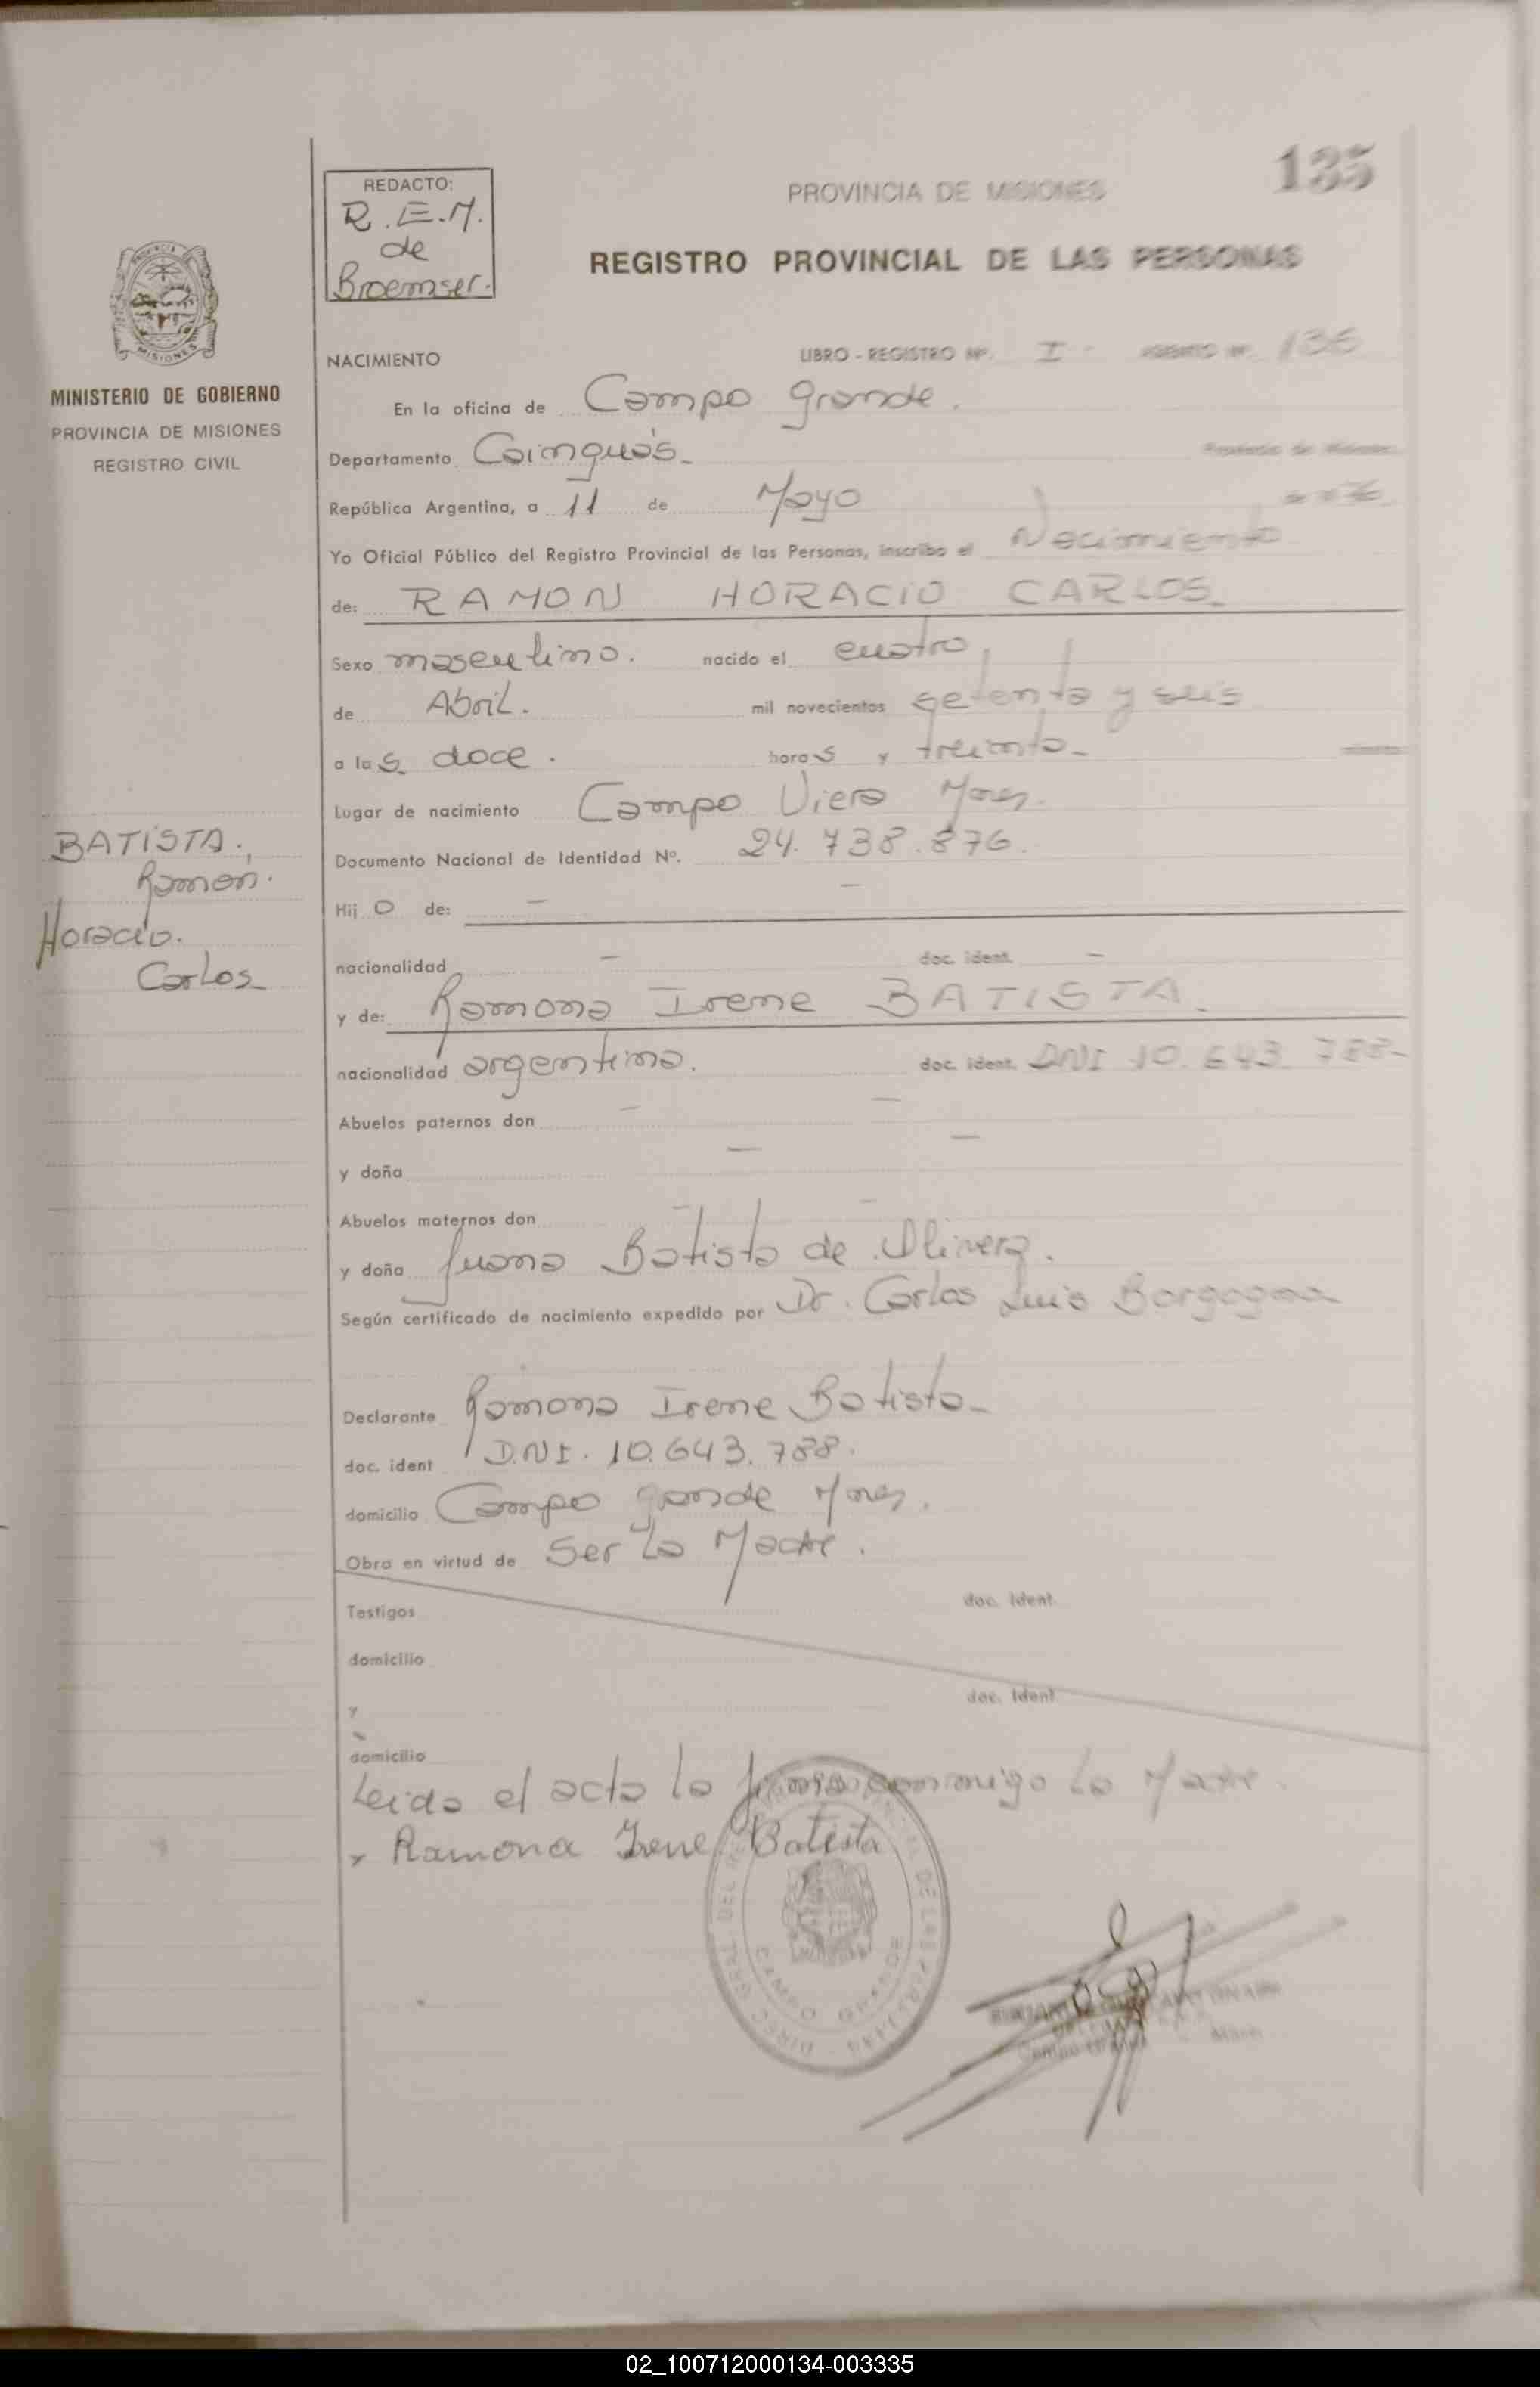 135
REDACTO:
R.E.M.
de
Broemser.
PROVINCIA DE MISIONES
REGISTRO PROVINCIAL DE LAS PERSONAS
MISIONES
MINISTERIO DE GOBIERNO
PROVINCIA DE MISIONES
REGISTRO CIVIL
NACIMIENTO LIBRO - REGISTRO Nº. I
En la oficina de Campo Grande.
Departamento Cainguás Provincia de Misiones
República Argentina, a 11 de Mayo
Yo Oficial Público del Registro Provincial de las Personas, inscribo el Nacimiento
de: RAMON HORACIO CARLOS.
Sexo masculino. nacido el cuatro,
de Abril. mil novecientos setenta y seis
a las doce. horas y treinta
Lugar de nacimiento Campo Viera Mnes.
Documento Nacional de Identidad Nº. 24.738.876.
BATISTA.,
Ramon.
Horacio.
Carlos
Hijo de: —
nacionalidad — doc. ident. —
y de: Ramona Irene BATISTA.
nacionalidad argentina. doc. ident. DNI 10.643.788
Abuelos paternos don —
y doña —
Abuelos maternos don —
y doña Juana Batista de Olivera.
Según certificado de nacimiento expedido por Dr. Carlos Luis Borgogna
Declarante Ramona Irene Batista
doc. ident D.N.I. 10.643.788.
domicilio Campo Grande Mnes.
Obra en virtud de Ser La Madre.
Testigos doc. ident.
domicilio
y doc. ident.
domicilio
Leida el acta la firma conmigo La Madre.
x Ramona Irene Batista
CAMPO GRANDE
02_100712000134-003335